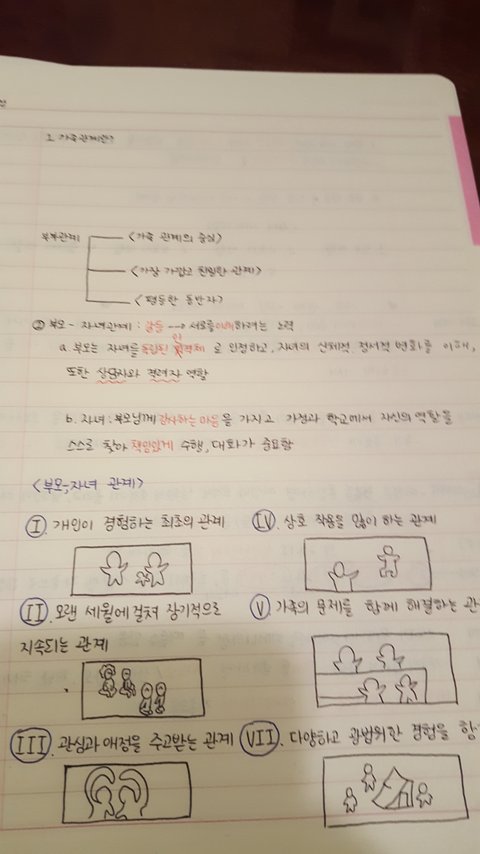 1. 가족관계란?
부부관계
<가족 관계의 중심>
<가장 가깝고 친밀한 관계>
<평등한 동반자>
② 부모-자녀관계 : 갈등 → 서로를 이해하려는 노력
a. 부모는 자녀를 독립된 인격체로 인정하고, 자녀의 신체적, 정서적 변화를 이해,
또한 상담자와 격려자 역할
b. 자녀 : 부모님께 감사하는 마음을 가지고 가정과 학교에서 자신의 역할을
스스로 찾아 책임있게 수행, 대화가 중요함
<부모-자녀 관계>
Ⅰ. 개인이 경험하는 최초의 관계
Ⅱ. 오랜 세월에 걸쳐 장기적으로
지속되는 관계
Ⅲ. 관심과 애정을 주고받는 관계
Ⅳ. 상호 작용을 많이 하는 관계
Ⅴ. 가족의 문제를 함께 해결하는 관
Ⅶ. 다양하고 광범위한 경험을 함